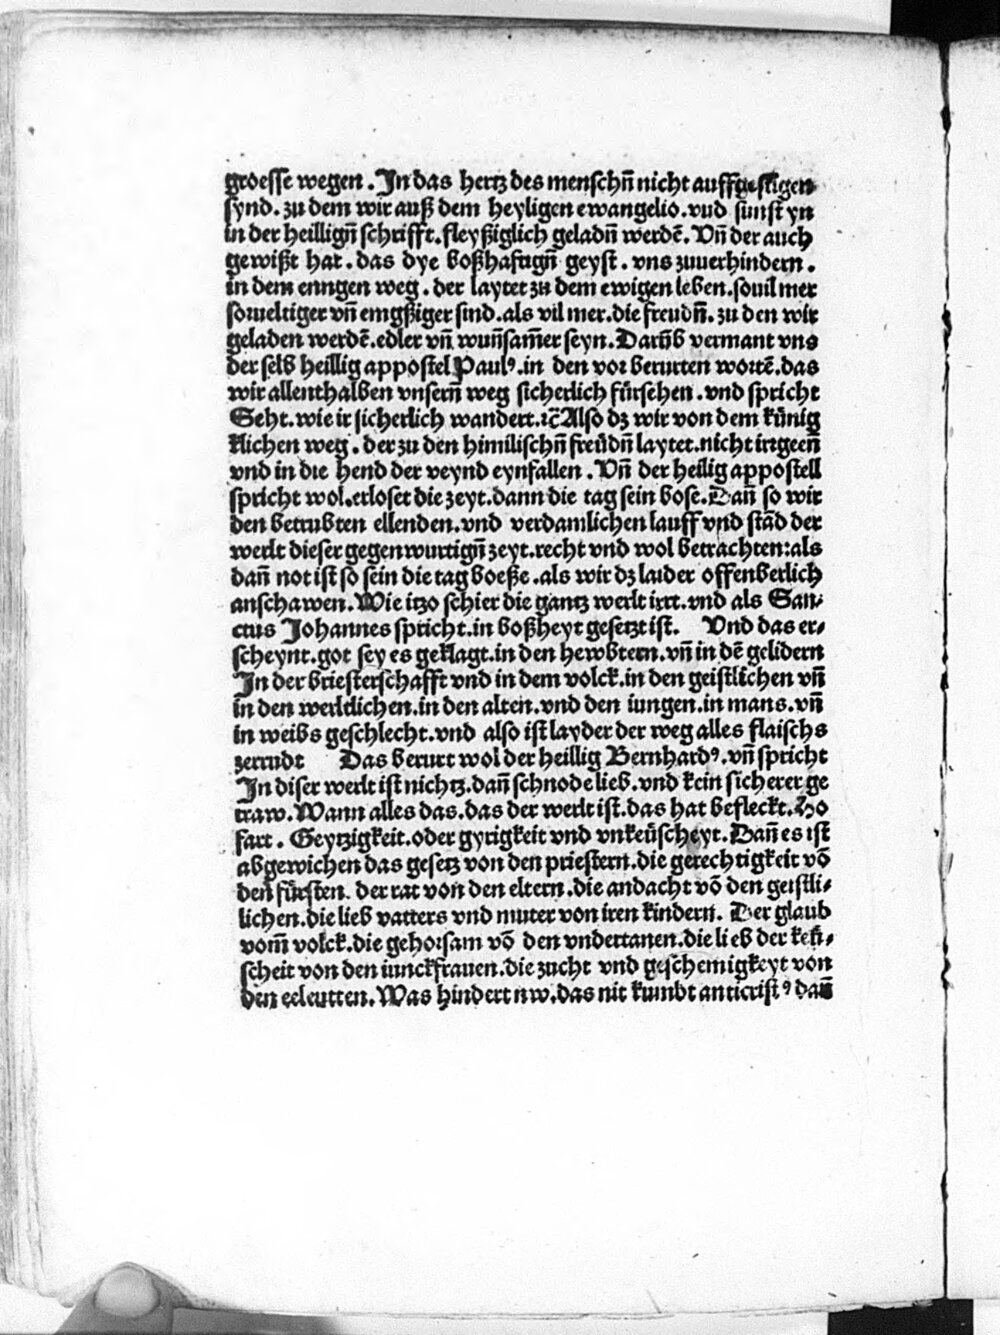 groesse wegen. In das hertz des menschñ nicht auffgestigen
synd. zu dem wir auß dem heyligen ewangelio. vud sunst yn
in der heilligñ schrifft. fleyßiglich geladñ werdē. Vñ der auch
gewißt hat. das dye boßhafftigñ geyst. vns zuuerhindern.
in dem enngen weg. der laytet zu dem ewigen leben. souil mer
soweltiger vñ emgßiger sind. als vil mer. die freudñ. zu den wir
geladen werdē. edler vñ wuñsam̃er seyn. Darūb vermant vns
der selb heillig appostel Paulꝰ. in den vor berurten wortē. das
wir allenthalben vnserñ weg sicherlich fürsehen. vnd spricht
Seht. wie ir sicherlich wandert. ⁊c̄ Also dz wir von dem künig
klichen weg. der zu den himilischñ freüdñ laytet. nicht irrgeeñ
vnd in die hend der veynd eynfallen. Vñ der heilig appostell
spricht wol. erloset die zeyt. dann die tag sein bose. Dañ so wir
den betrubten ellenden. vnd verdamlichen lauff vnd stād der
werlt dieser gegenwurtigñ zeyt. recht vnd wol betrachten: als
dañ not ist so sein die tag boeße. als wir dz laider offenberlich
anschawen. Wie itzo schier die gantz werlt irrt. vnd als San⸗
ctus Johannes spricht. in boßheyt gesetzt ist. Vnd das er⸗
scheynt. got sey es geklagt. in den hewbtern. vñ in dē gelidern
In der briesterschafft vnd in dem volck. in den geistlichen vñ
in den werltlichen. in den alten. vnd den iungen. in mans. vñ
in weibs geschlecht. vnd also ist layder der weg alles flaischs
zerrudt Das berurt wol der heillig Bernhardꝰ. vñ spricht
In diser werlt ist nichtz. dañ schnode lieb. vnd kein sicherer ge
traw. Wann alles das. das der werlt ist. das hat befleckt. Ho
fart. Geytzigkeit. oder gyrigkeit vnd vnkeüscheyt. Dañ es ist
abgewichen das gesetz von den priestern. die gerechtigkeit vō
den fürsten. der rat von den eltern. die andacht vō den geistli⸗
lichen. die lieb vatters vnd muter von iren kindern. Der glaub
vom̃ volck. die gehorsam vō den vndertanen. die lieb der kek⸗
scheit von den iunckfrauen. die zucht vnd geschemigkeyt von
den eeleutten. Was hindert nw. das nit kumbt anticristꝰ dañ